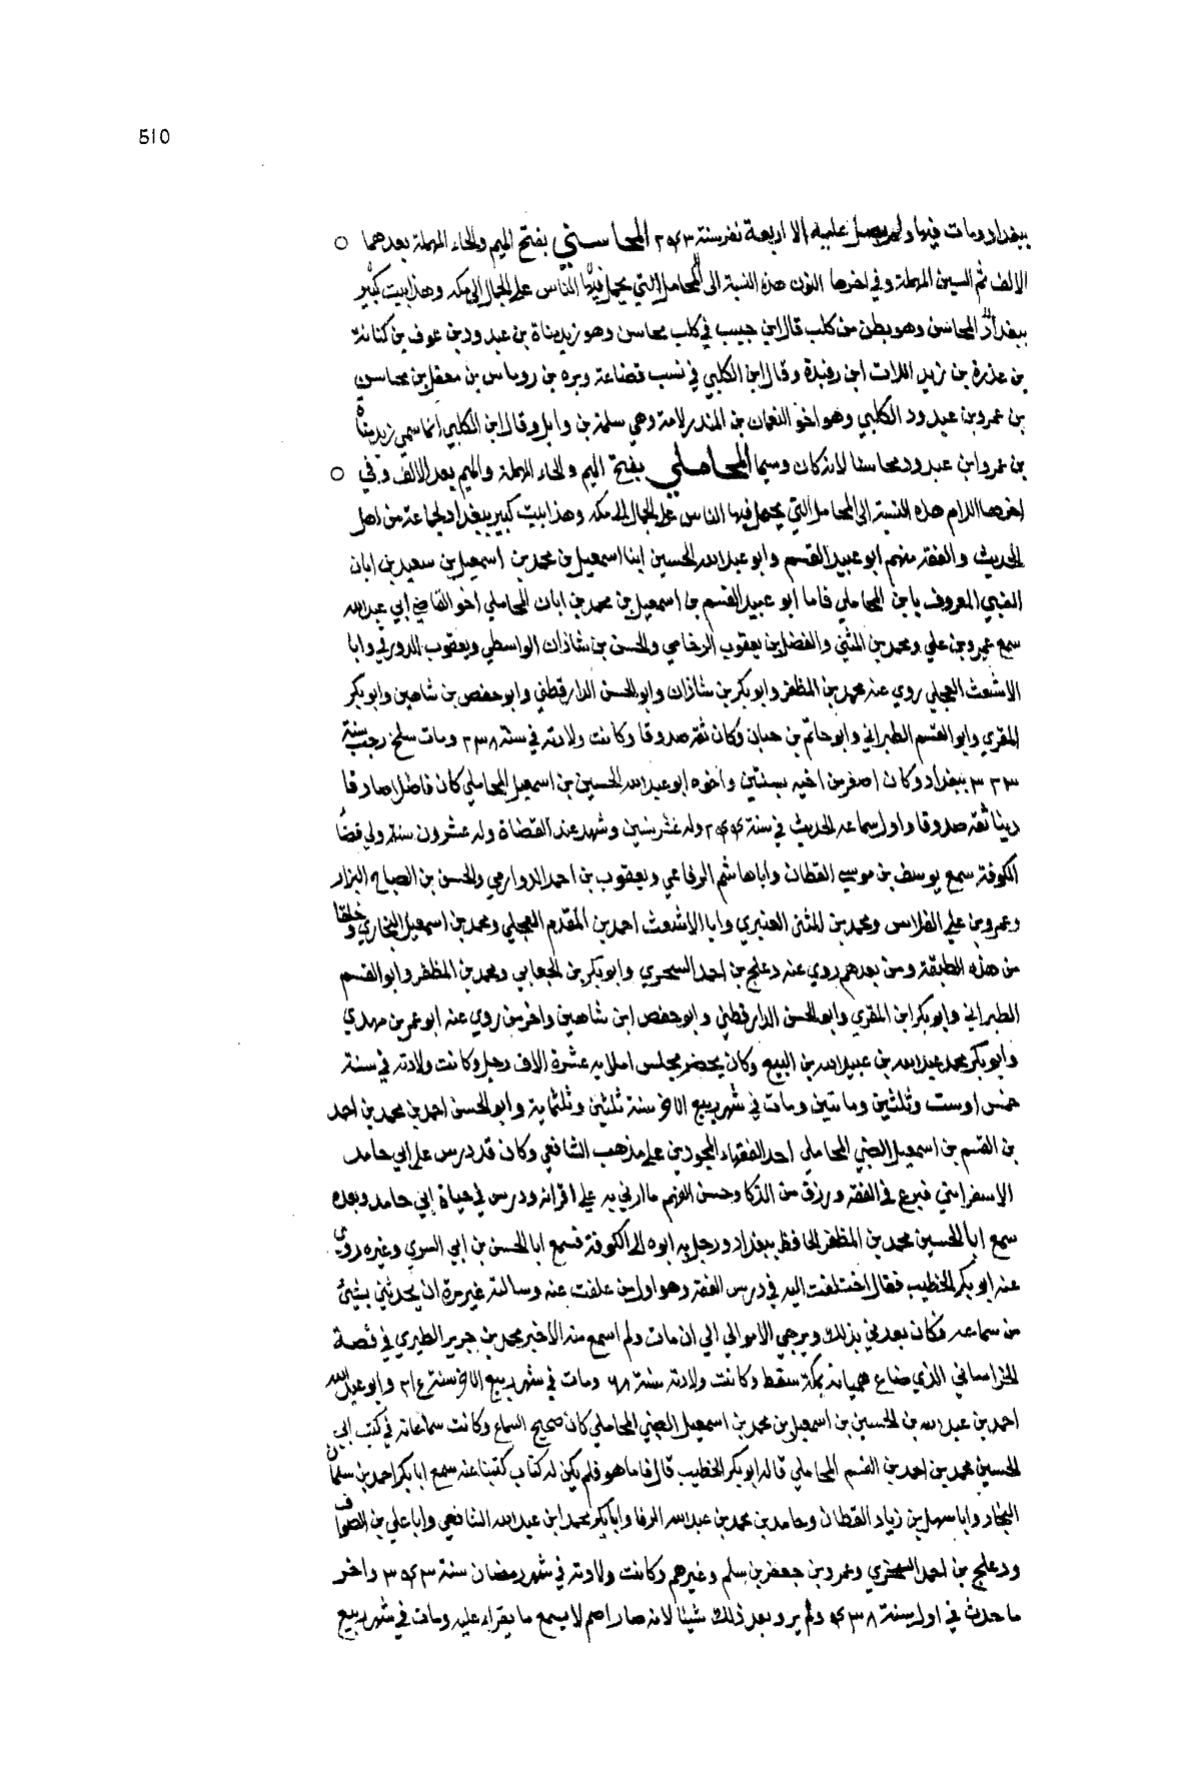 510
ببغداد ومات فيها ولم يصل عليه الا اربعة نفر سنة ٢٤٣ المحاسني بفتح الميم والحاء المهملة بعدهما ○
الالف ثم السين المهملة وفي اخرها النون هذه النسبة الى المحامل التي يحمل فيها الناس على الجمال الى مكه وهذا بيت كبير
ببغداد المحاسن وهو بطن من كلب قال ابن حبيب في كلب محاسن وهو زيد مناة بن عبد ود بن عوف بن كنانة
بن عذرة بن زيد اللات ابن رفيدة وقال ابن الكلبي في نسب قضاعة وبره بن رومانس بن معقل بن محاسن
بن عمرو بن عبد ود الكلبي وهو اخو النعمان بن المنذر لامه وهي سلمة بن وايل وقال ابن الكلبي انما سمي زيد مناة
بن عمرو ابن عبد ود محاسنا لانه كان وسيما المحاملي بفتح الميم والحاء المهملة والميم بعد الالف وفي ○
اخرها اللام هذه النسبة الى المحامل التي يحمل فيها الناس على الجمال الى مكه وهذا بيت كبير ببغداد لجماعة من اهل
الحديث والفقه منهم ابو عبيد القسم وابو عبد الله الحسين ابنا اسمعيل بن محمد بن اسمعيل بن سعيد بن ابان
الضبي المعروف بابن المحاملي فاما ابو عبيد القسم بن اسمعيل بن محمد بن ابان المحاملي اخو القاضي ابي عبد الله
سمع عمرو بن علي ومحمد بن المثني والفضل بن يعقوب الرخامي والحسن بن شاذان الواسطي ويعقوب الدورقي وابا
الاشعث العجلي روي عنه محمد بن المظفر وابو بكر بن شاذان وابو الحسن الدارقطني وابو حفص بن شاهين وابو بكر
المقري وابو القسم الطبراني وابو حاتم بن حبان وكان ثقة صدوقا وكانت ولادته في سنة ٢٣٨ ومات سلخ رجب سنة
٣٢٣ ببغداد وكان اصغر من اخيه بسنتين واخوه ابو عبد الله الحسين بن اسمعيل المحاملي كان فاضلا صادقا
دينا ثقة صدوقا واول سماعه الحديث في سنة ٢٤٤ وله عشر سنين وشهد عند القضاة وله عشرون سنة وولي قضا
الكوفة سمع يوسف بن موسي القطان وابا هاشم الرفاعي ويعقوب بن احمد الدوارمي والحسن بن الصباح البزار
وعمرو بن علي الفلاس ومحمد بن المثنى العنبري وابا الاشعث احمد بن المقدم العجلي ومحمد بن اسمعيل البخاري وخلقا
من هذه الطبقة ومن بعدهم روي عنه دعلج بن احمد السجزي وابو بكر بن الجعابي ومحمد بن المظفر وابو القسم
الطبراني وابو بكر ابن المقري وابو الحسن الدارقطني وابو حفص ابن شاهين واخر من روي عنه ابو عمر بن مهدي
وابو بكر محمد عبد الله بن عبيد الله بن البيع وكان يحضر مجلس املايه عشرة الاف رجل وكانت ولادته في سنة
خمس او ست وثلثين ومايتين ومات في شهر ربيع الاخر سنة ثلثين وثلثماية وابو الحسن احمد بن محمد بن احمد
بن القسم بن اسمعيل الضبي المحاملي احد الفقهاء المجودين على مذهب الشافعي وكان قد درس على ابي حامد
الاسفرايني فبرع في الفقه ورزق من الذكا وحسن الفهم ما اربي به علي اقرانه ودرس في حياة ابي حامد وبعده
سمع ابا الحسين محمد بن المظفر الحافظ ببغداد ورحل به ابوه الى الكوفة فسمع ابا الحسن بن ابي السري وغيره روي
عنه ابو بكر الخطيب فقال اختلفت اليه في درس الفقه وهو اول من علقت عنه وسالته غير مرة ان يحدثني بشيئ
من سماعه فكان يعدني بذلك ويرجي الامر الي ان مات ولم اسمع منه الا خبر محمد بن جرير الطبري في قصة
الخراساني الذي ضاع هميانه بمكة سقط وكانت ولادته سنة ٦٨ ومات في شهر ربيع الاخر سنة ٤١٠ وابو عبد الله
احمد بن عبد الله بن الحسين بن اسمعيل بن محمد بن اسمعيل الضبي المحاملي كان صحيح السماع وكانت سماعاته في كتب ابي
الحسين محمد بن احمد بن القسم المحاملي قاله ابو بكر الخطيب قال فاما هو فلم يكن له كتاب كتبنا عنه سمع ابا بكر احمد بن سلمان
النجاد وابا سهل بن زياد القطان وحامد بن محمد بن عبد الله الرفا وابا بكر محمد ابن عبد الله الشافعي وابا علي بن الصواف
ودعلج بن احمد السجزي وعمرو بن جعفر بن سلم وغيرهم وكانت ولادته في شهر رمضان سنة ٣٤٣ واخر
ما حدث في اول سنة ٤٣٨ ولم يرو بعد ذلك شيئا لانه صار اصم لا يسمع ما يقراء عليه ومات في شهر ربيع